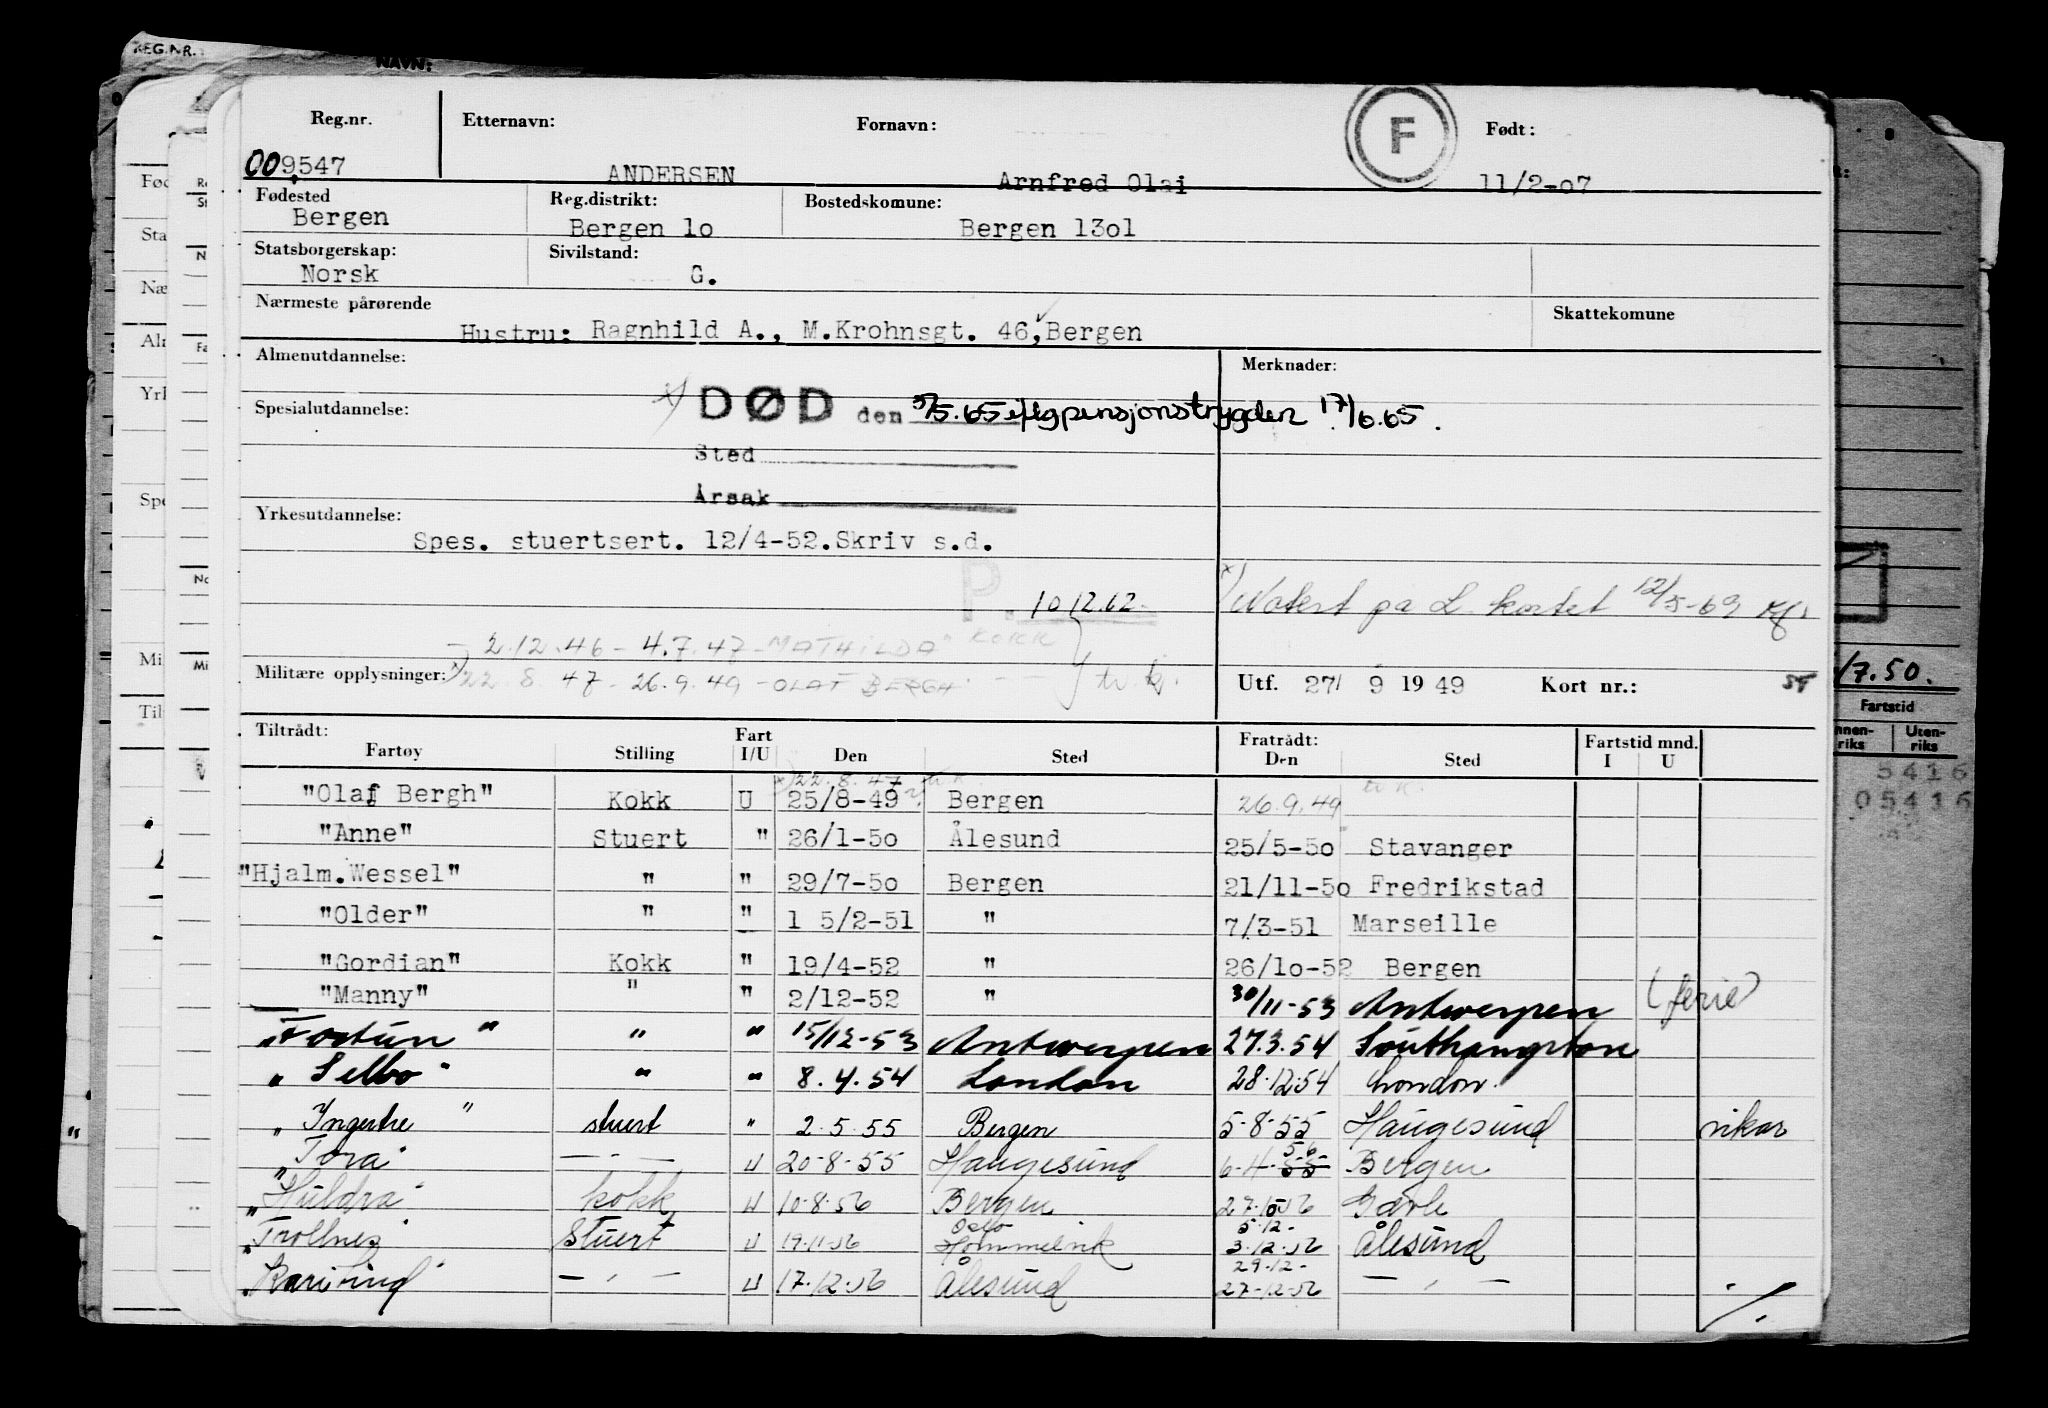 REG.NR. NAVN:
Reg.nr. Etternavn: Fornavn: F Født:
009547 ANDERSEN Arnfred Olai 11/2-07
Fødested Reg.distrikt: Bostedskomune:
Bergen Bergen 1o Bergen 13o1
Statsborgerskap: Sivilstand:
Norsk G.
Nærmeste pårørende Skattekomune
Hustru: Ragnhild A., M.Krohnsgt. 46, Bergen
Almenutdannelse: Merknader:
x) DØD den 5/5.65 iflg pensjonstrygden 17/6.65.
Spesialutdannelse:
Sted
Årsak
Yrkesutdannelse:
Spes. stuertsert. 12/4-52. Skriv s.d.
P. 10 12.62. x) Notert på L. kortet 12/5-69
- 2.12.46 - 4.7.47 - MATHILDA" KOKK
Militære opplysninger: x) 22.8.47 - 26.9.49 - OLAF BERGH. - - tv. kj. Utf. 27/ 9 1949 Kort nr.:
Tiltrådt: Fart Fratrådt: Fartstid mnd.
Fartøy Stilling I/U Den Sted Den Sted I U
x) 22.8.47
"Olaf Bergh" Kokk U 25/8-49 Bergen 26.9.49
"Anne" Stuert " 26/1-5o Ålesund 25/5-5o Stavanger
"Hjalm.Wessel" " " 29/7-5o Bergen 21/11-5o Fredrikstad
"Older" " " 1 5/2-51 " 7/3-51 Marseille
"Gordian" Kokk " 19/4-52 " 26/1o-52 Bergen
"Manny" " " 2/12-52 " 30/11-53 Antwerpen (ferie)
" Fortun " " " 15/12-53 Antwerpen 27.3.54 Southampton
" Selbo " " " 8.4.54 London 28.12.54 London.
" Ingertre " stuert " 2.5.55 Bergen 5-8-55 Haugesund vikar
" Tora " - " - U 20-8-55 Haugesund 6-4-55 56 Bergen
" Huldra " kokk U 10-8-56 Bergen 27.10.56 Gävle
Oslo 5.12-
" Trollnes " Stuert U 19.11.56 Hommelvik 3.12.56 Ålesund
29.12-
" Karisund " - " - U 17.12.56 Ålesund 27-12-56 - " -
/.
/7.50.
Fartstid
Innen-riks Uten-riks
5416
05416